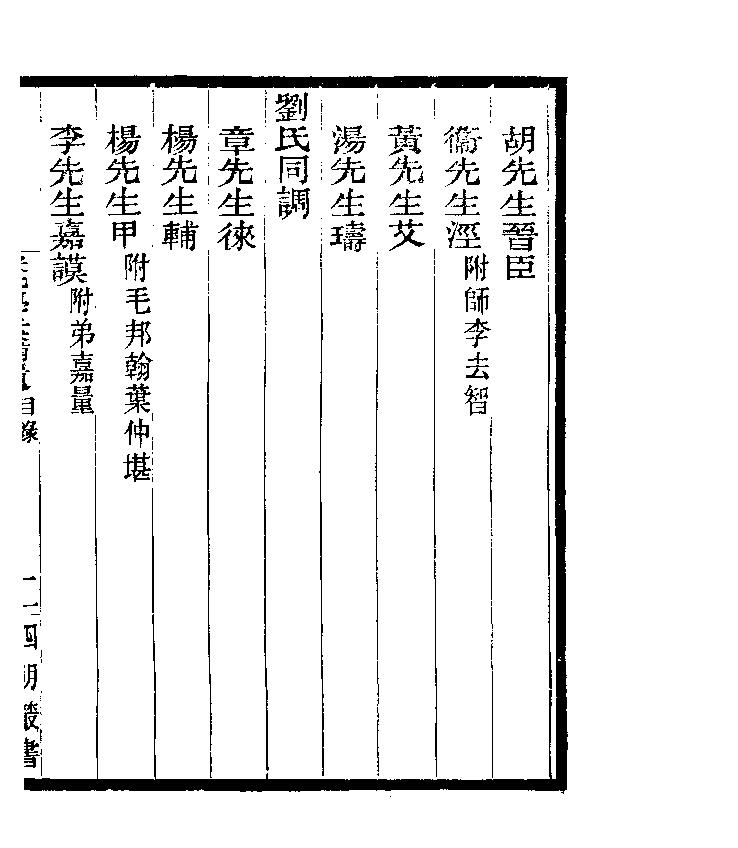 胡先生晉臣
衞先生涇附師李去智
黃先生艾
湯先生璹
劉氏同調
章先生徠
楊先生輔
楊先生甲附毛邦翰葉仲堪
李先生嘉謨附弟嘉量
目錄
四明叢書